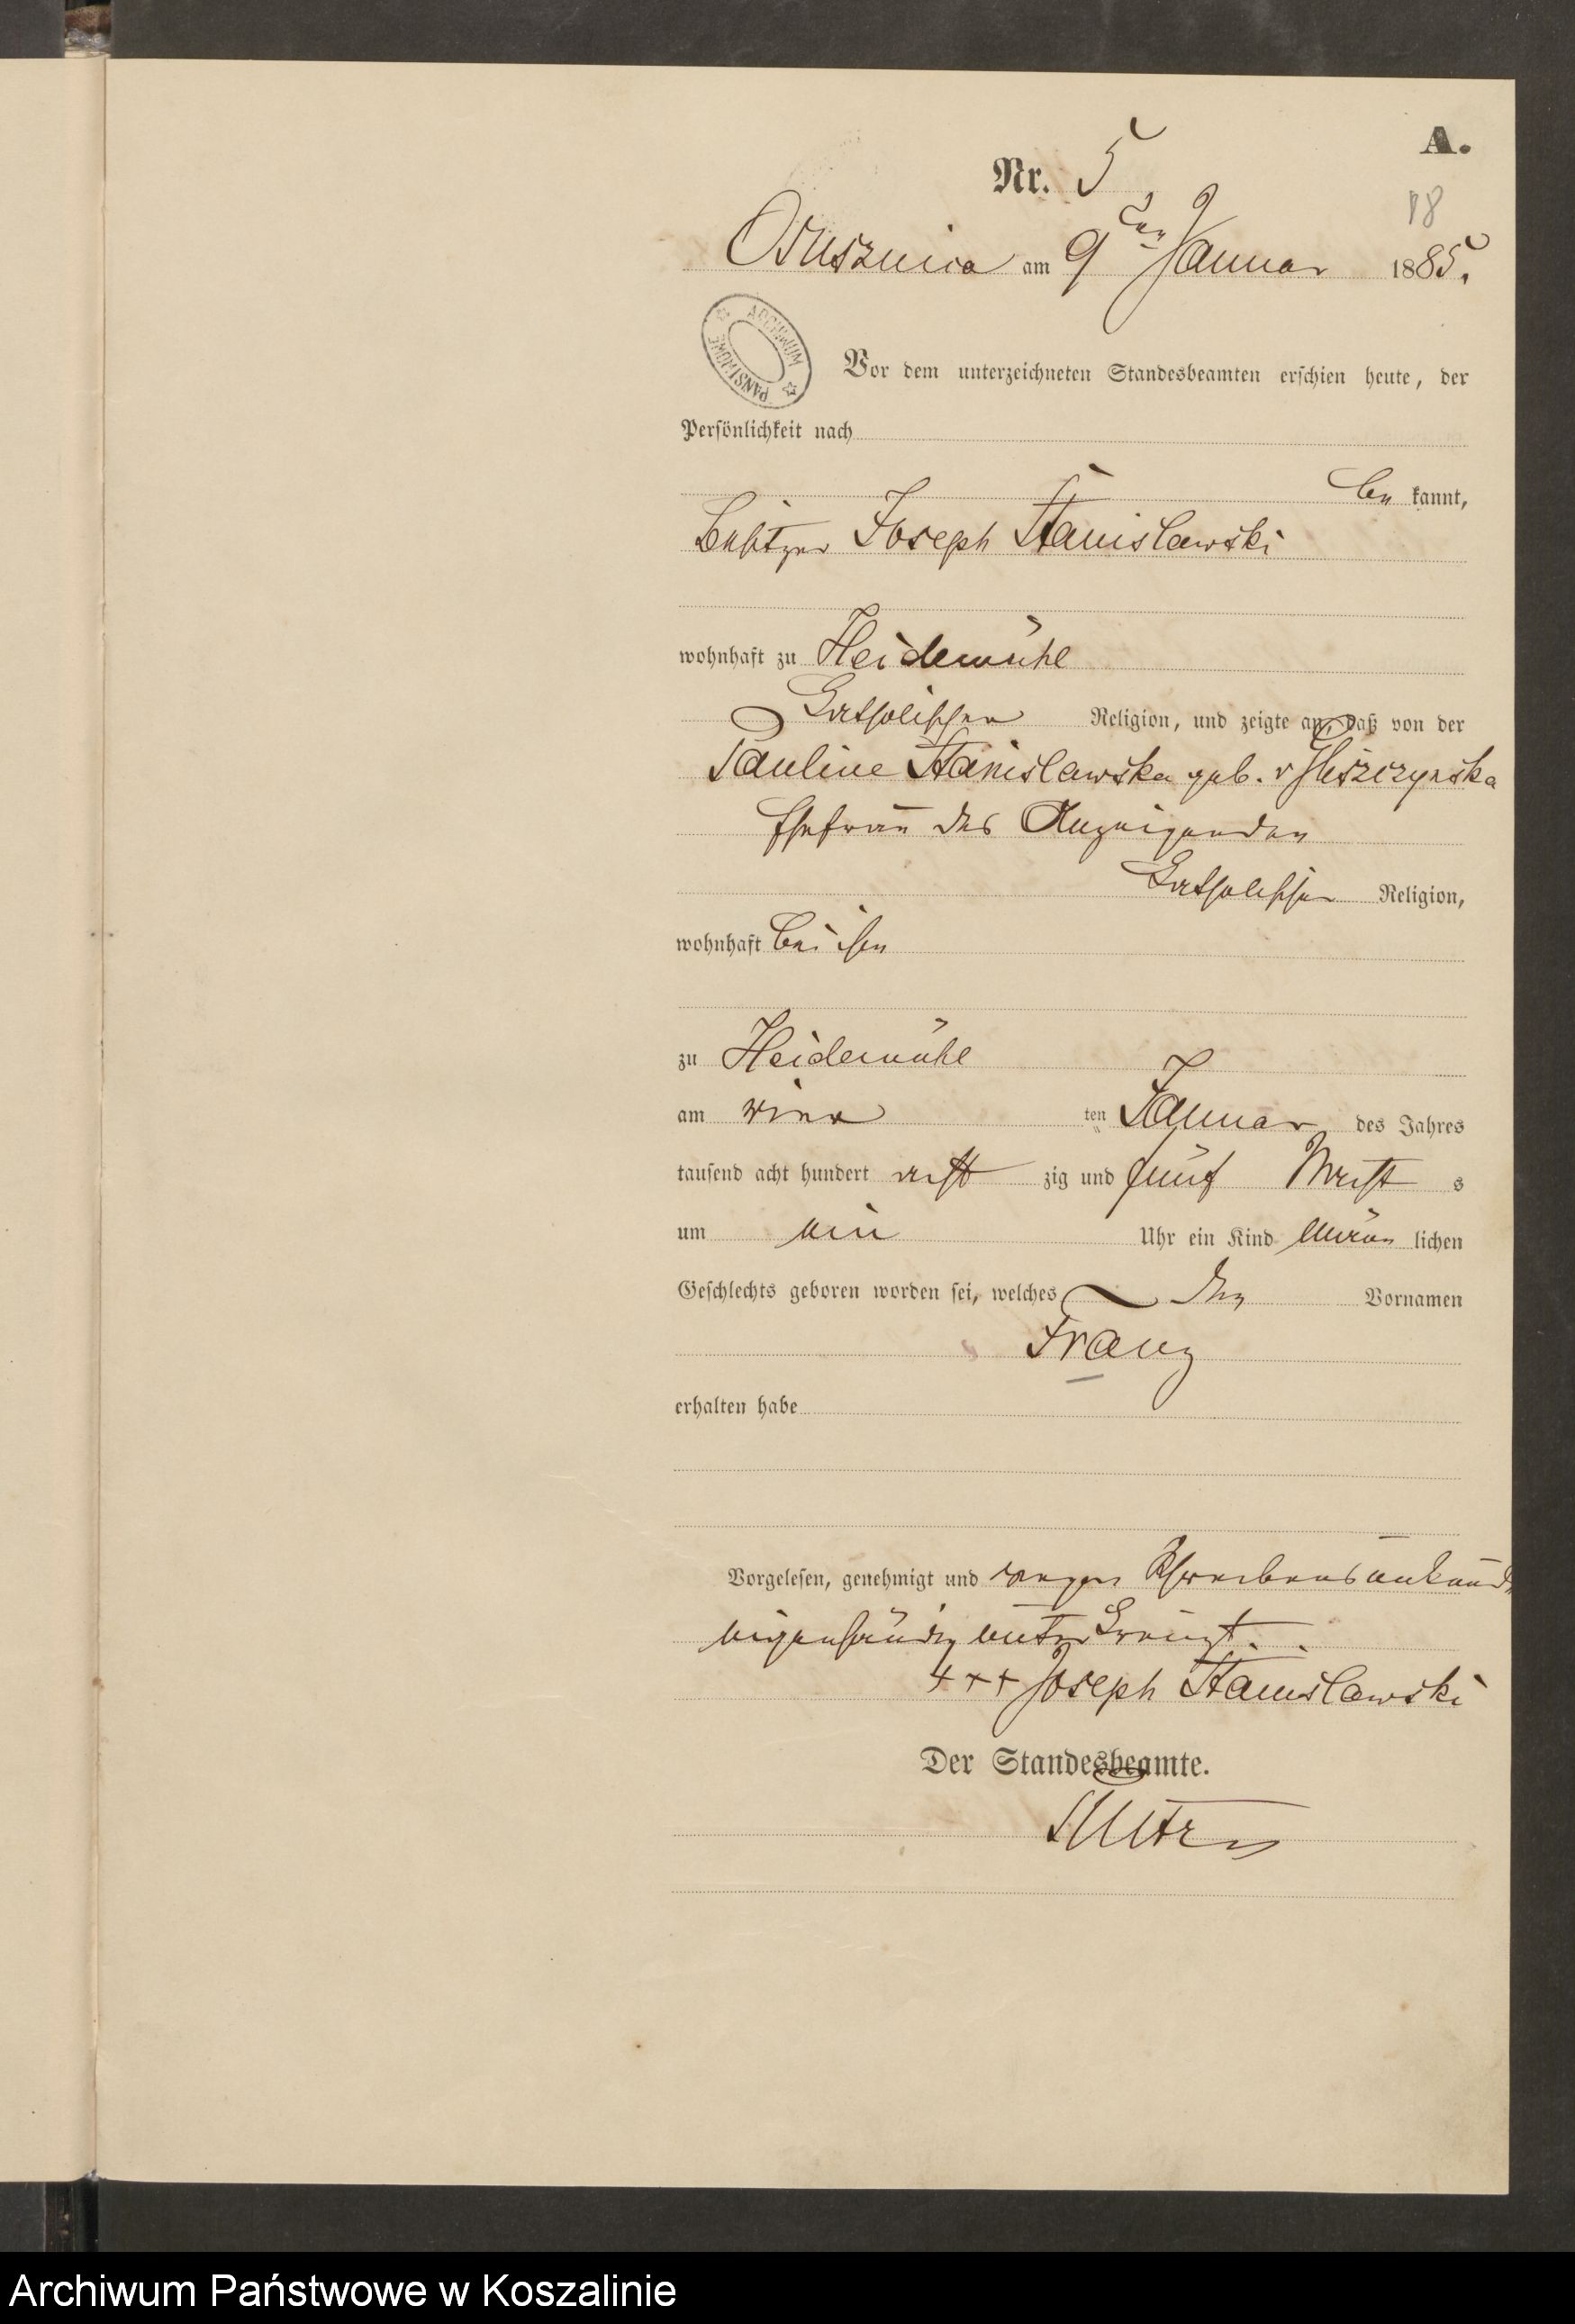 A.
Nr. 5
18
Ossusznica am 9ten Januar 1885.
ARCHIWUM PAŃSTWOWE
Vor dem unterzeichneten Standesbeamten erschien heute, der
Persönlichkeit nach
be kannt,
Besitzer Joseph Stanislawski
wohnhaft zu Heidemühl
Katholischer Religion, und zeigte an, daß von der
Pauline Stanislawska geb. v
Ehefrau des Anzeigenden
Katholischer Religion,
wohnhaft bei ihm
zu Heidemühl
am vier ten Januar des Jahres
tausend acht hundert acht zig und fünf Nacht s
um ein Uhr ein Kind männ lichen
Geschlechts geboren worden sei, welches den Vornamen
Franz
erhalten habe
Vorgelesen, genehmigt und wegen Schreibensunkunde
eigenhändig unterkreuzt.
+++ Joseph Stanislawski
Der Standesbeamte.
Archiwum Państwowe w Koszalinie